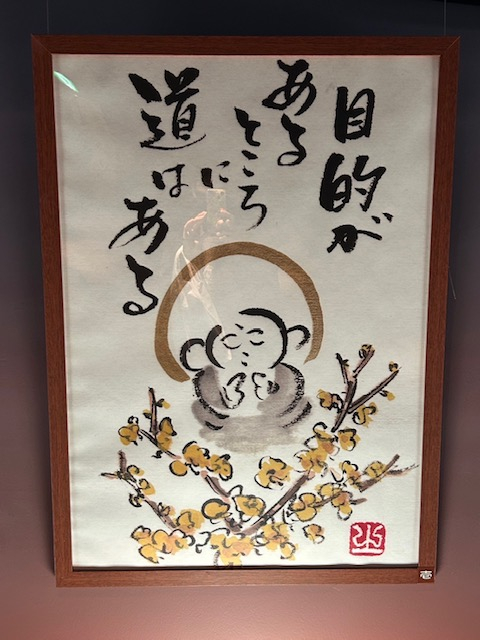 目的が
ある
ところ
に
道は
ある
壱